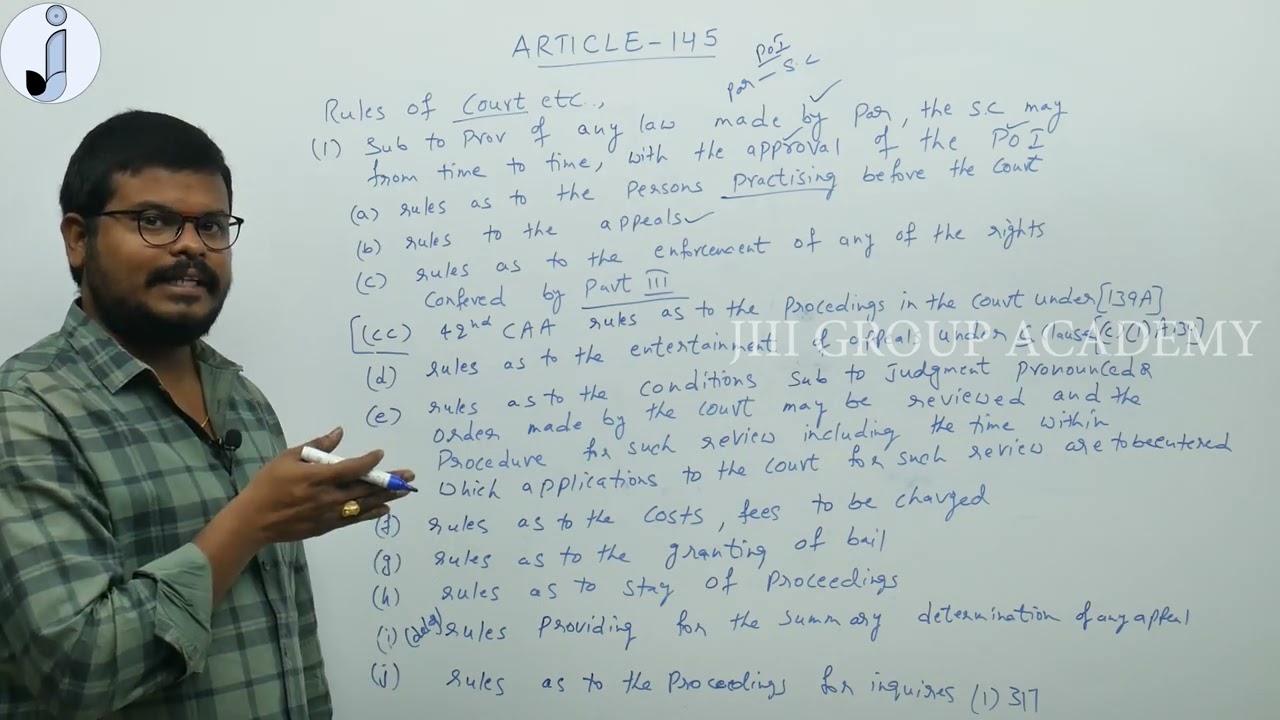 ARTICLE-145
PoI
Par - S.C
Rules of Court etc.,
(1) Sub to Prov of any law made by Par, the S.C may
from time to time, with the approval of the PoI
(a) rules as to the Persons Practising before the Court
(b) rules to the appeals
(c) rules as to the enforcement of any of the rights
Confered by Part III
[(cc) 42nd CAA rules as to the Procedings in the Court under [139A]
(d) rules as to the entertainment of appeals under
JHI GROUP ACADEMY
(e) rules as to the conditions Sub to Judgment Pronounced &
order made by the Court may be reviewed and the
Procedure for such review including the time within
which applications to the Court for such review are to be entered
(f) rules as to the Costs, fees to be charged
(g) rules as to the granting of bail
(h) rules as to stay of Proceedings
(i) rules Providing for the summary determination of any appeal
(j) rules as to the Proceedings for inquires (1) 317